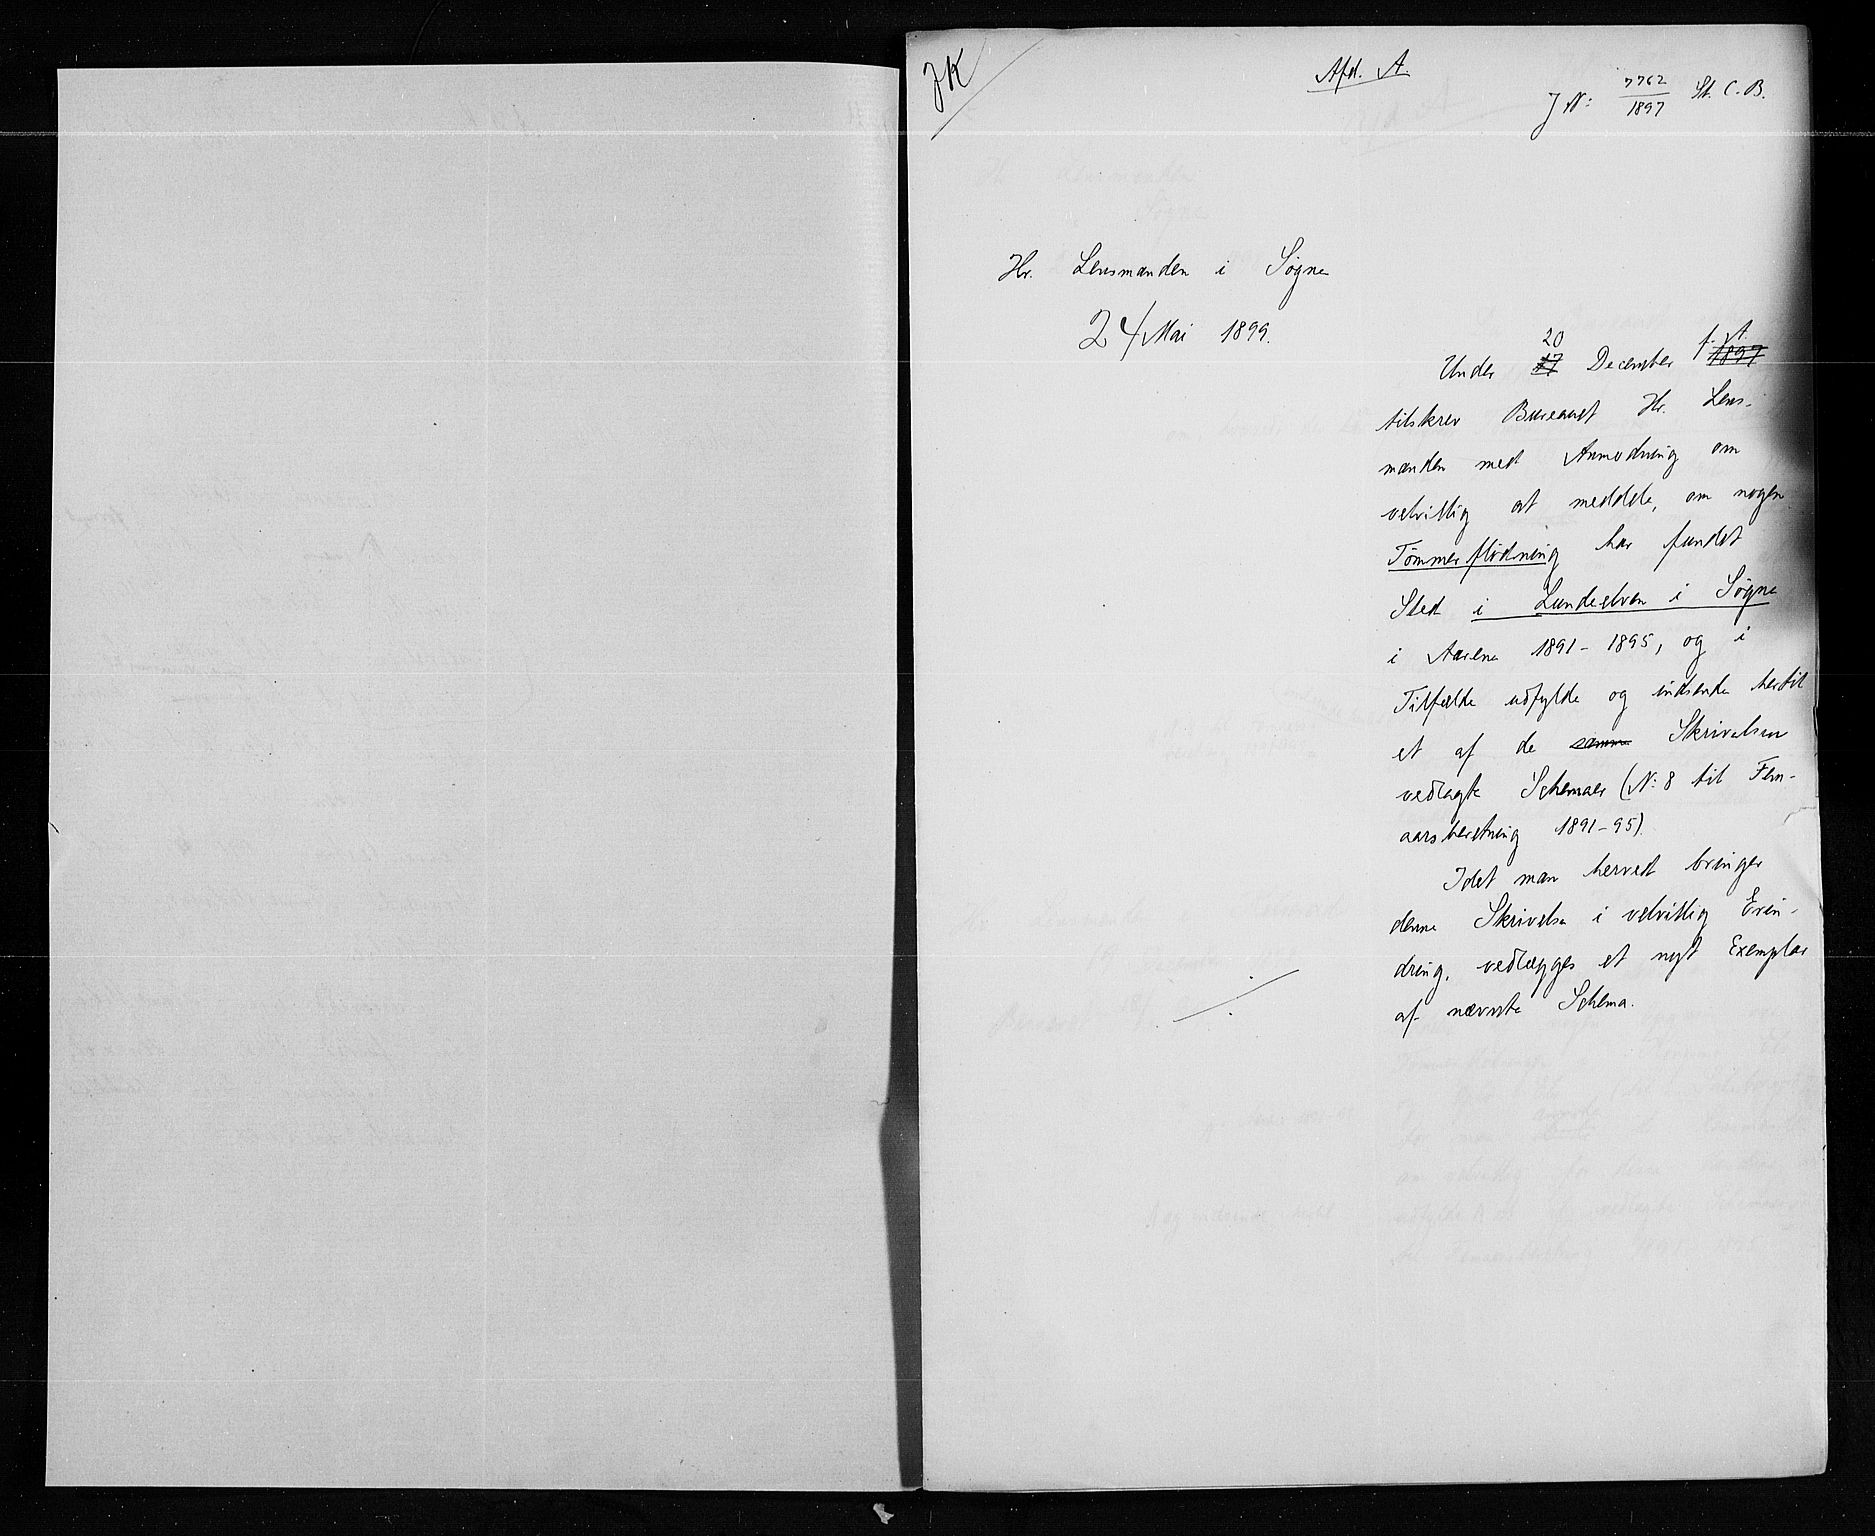 JK
Afd. A.
J. N: 7762/1897 St. C. B.
Hr. Lensmanden i Søgne
24/Mai 1899.
20 f. A.
Under 17 December 1897
tilskrev Bureauet Hr. Lens-
manden med Anmodning om
velvillig at meddele, om nogen
Tømmerflødning har fundet
Sted i Lundeelven i Søgne
i Aarene 1891-1895, og i
Tilfælde udfylde og indsende hertil
et af de samme Skrivelsen
vedlagte Schemaer (N: 8 til Fem-
aarsberetning 1891-95).
Idet man herved bringer
denne Skrivelse i velvillig Erin-
dring, vedlægges et nyt Exemplar
af nævnte Schema.